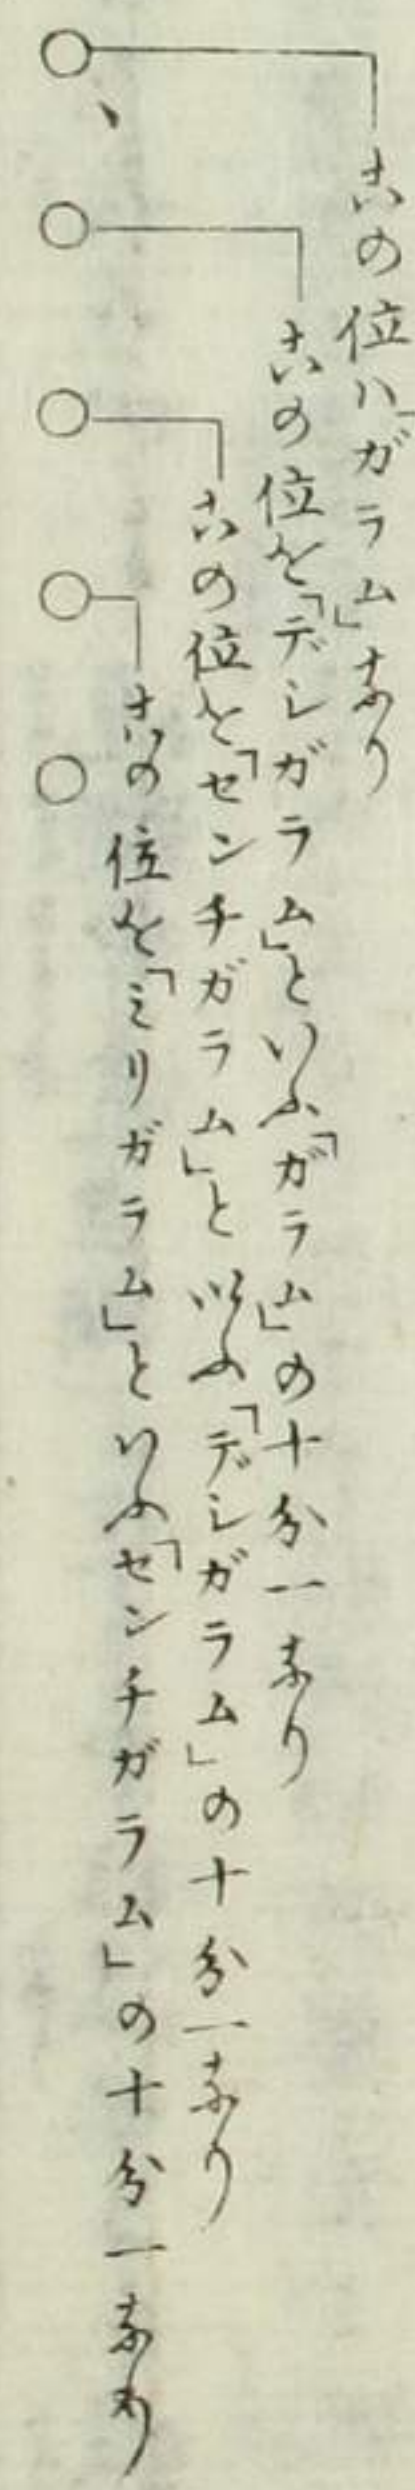 古の位ハ「ガラム」なり
古の位を「デシガラム」といふ「ガラム」の十分一なり
古の位を「センチガラム」と以ふ「デシガラム」の十分一なり
古の位を「ミリガラム」といふ「センチガラム」の十分一なり
〇、〇〇〇〇